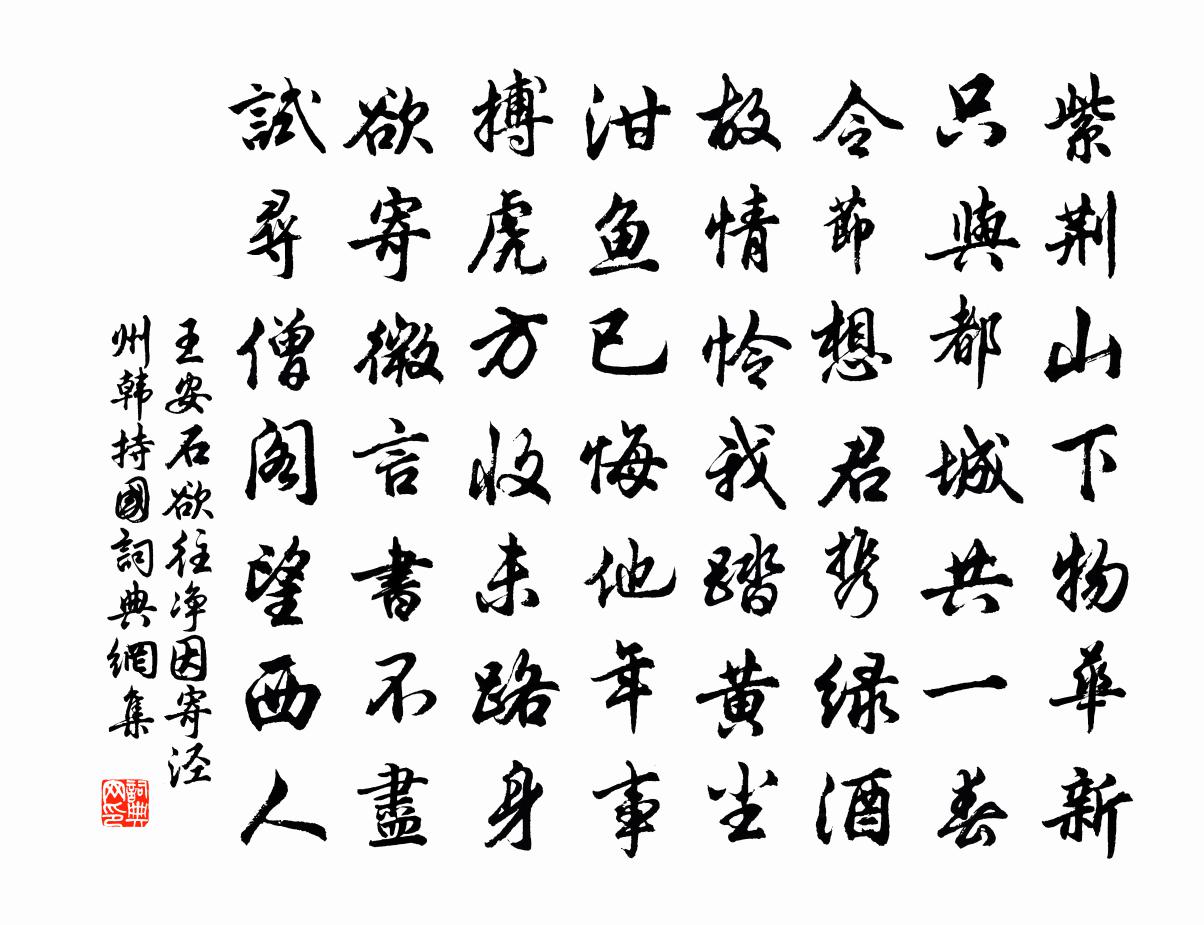 紫荆山下物華新
只與都城共一春
令節想君携绿酒
故情怜我踏黄尘
泔鱼已悔他年事
搏虎方收末路身
欲寄微言書不盡
試尋僧阁望西人
王安石欲往净因寄泾
州韩持國詞典網集
詞典
网印